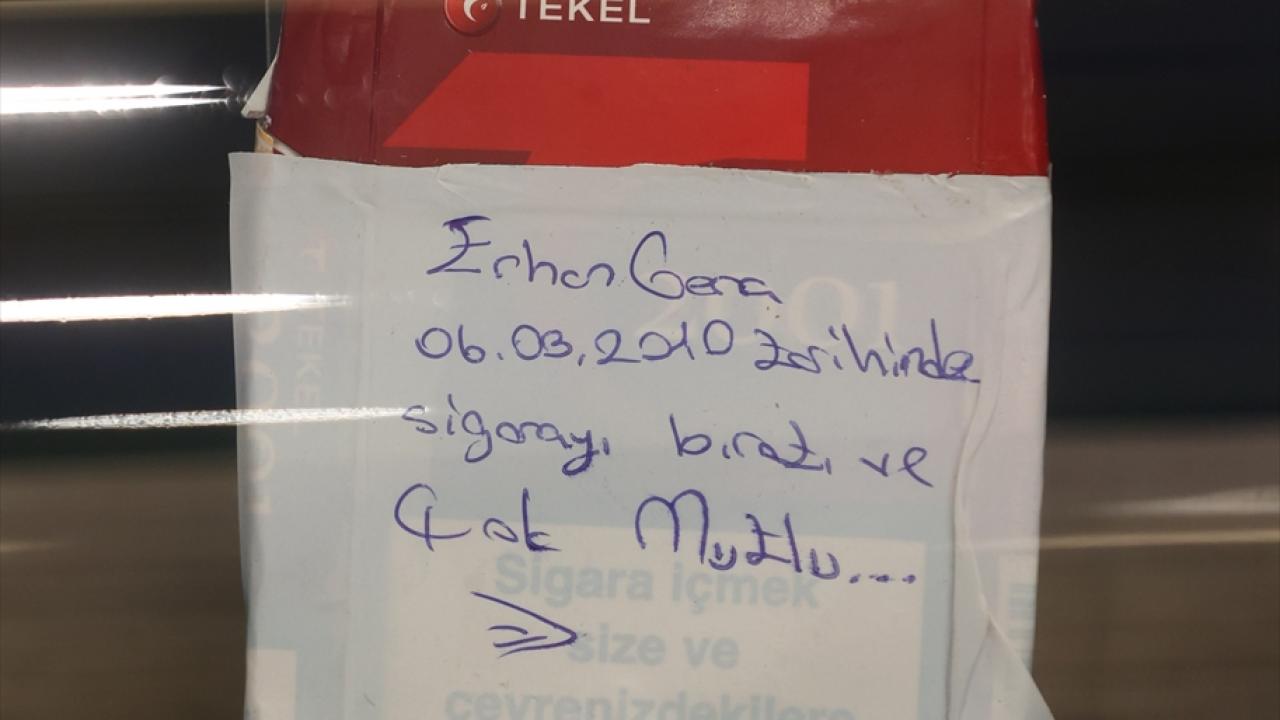 TEKEL
Erhan Genç
06.03.2010 tarihinde
sigarayı bıraktı ve
Çok Mutlu....
Sigara içmek
size ve
çevrenizdekilere
TEKEL
2001